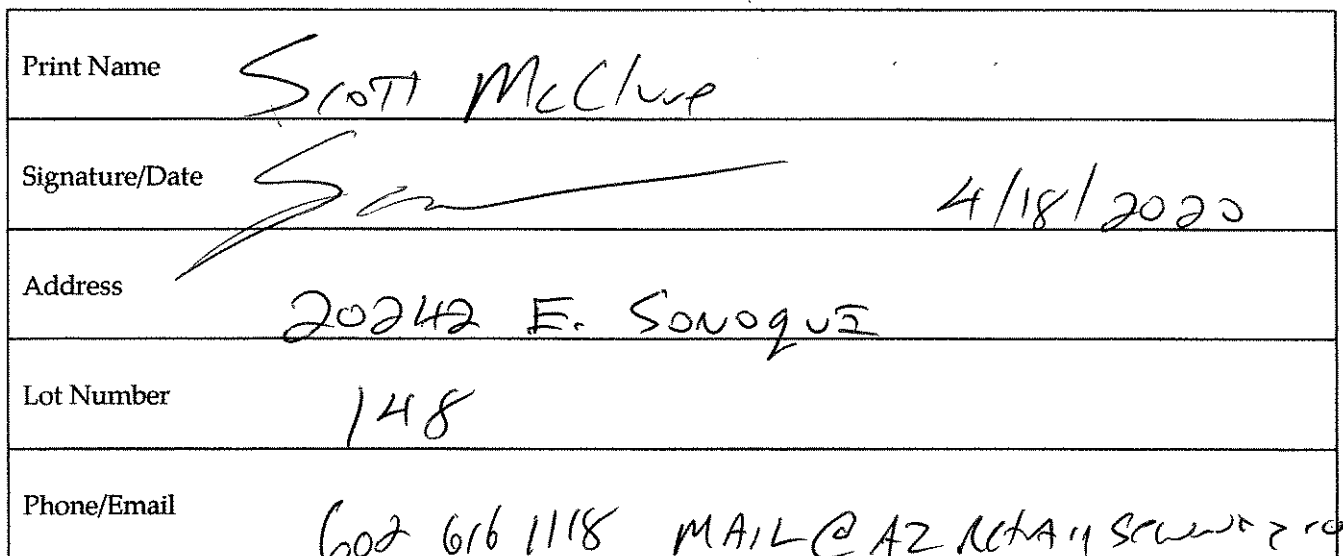 Print Name Scott McClure
Signature/Date 4/18/2020
Address 20242 E. SONOQUI
Lot Number 148
Phone/Email 602 616 1118